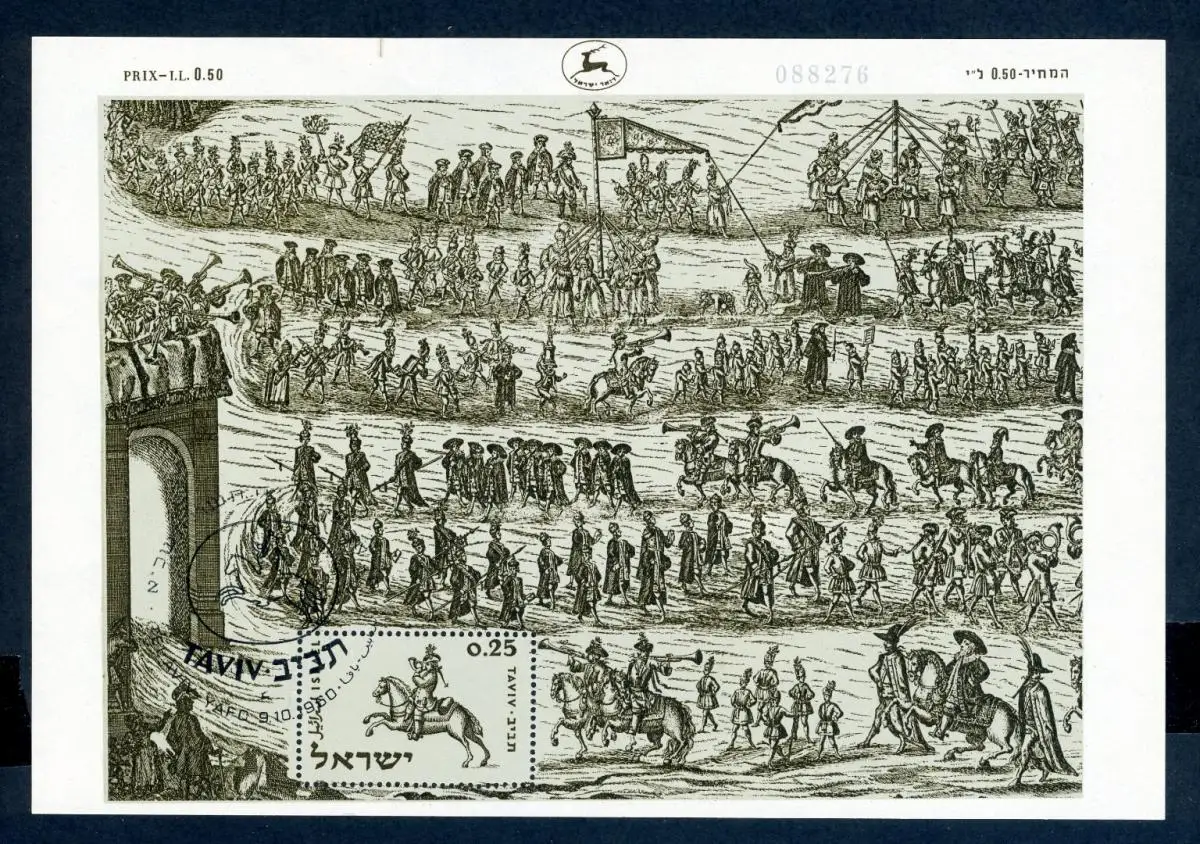 PRIX–I.L. 0.50
דואר ישראל
088276
המחיר-0.50 ל"י
TAVIV-תביב
YAFO 9.10.1960
0.25
TAVIV-תביב
ישראל